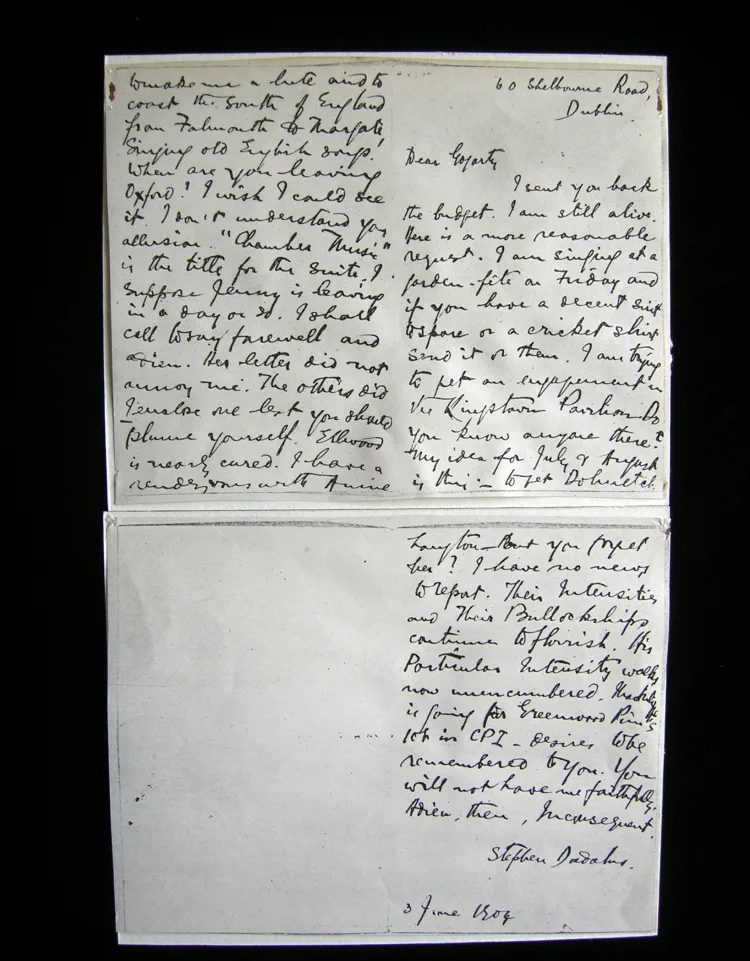 60 Shelbourne Road,
Dublin.
Dear Gogarty
I sent you back
the budget. I am still alive.
Here is a more reasonable
request. I am singing at a
garden-fête on Friday and
if you have a decent suit
to spare or a cricket shirt
send it or them. I am trying
to get an engagement in
the Kingstown Pavilion. Do
you know anyone there?
My idea for July & August
is this — to get Dolmetsch
to make me a lute and to
coast the South of England
from Falmouth to Margate
Singing old English songs.
When are you leaving
Oxford? I wish I could see
it. I don't understand your
allusion. "Chamber Music"
is the title for the suite. I
suppose Jenny is leaving
in a day or so. I shall
call to say farewell and
adieu. Her letter did not
annoy me. The others did
I enclose one lest you should
plume yourself. Ellwood
is nearly cured. I have a
rendezvous with Annie
Langton — But you forget
her? I have no news
to report. Their Intensities
and Their Bullockships
continue to flourish. His
Particular Intensity walks
now unencumbered.
is going for Greenwood Pim's
job in CPI — desires to be
remembered to you. You
will not have me faithfully.
Adieu, then, Inconsequent.
Stephen Dedalus.
3 June 1904